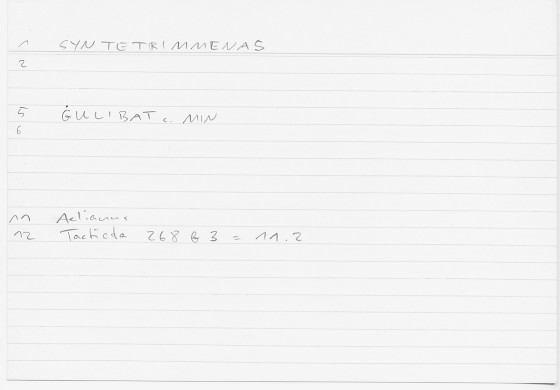 1 SYNTETRIMMENAS
2
5 ĠULIBAT c. MIN
6
11 Aelianus
12 Tactica 268 B 3 = 11.2